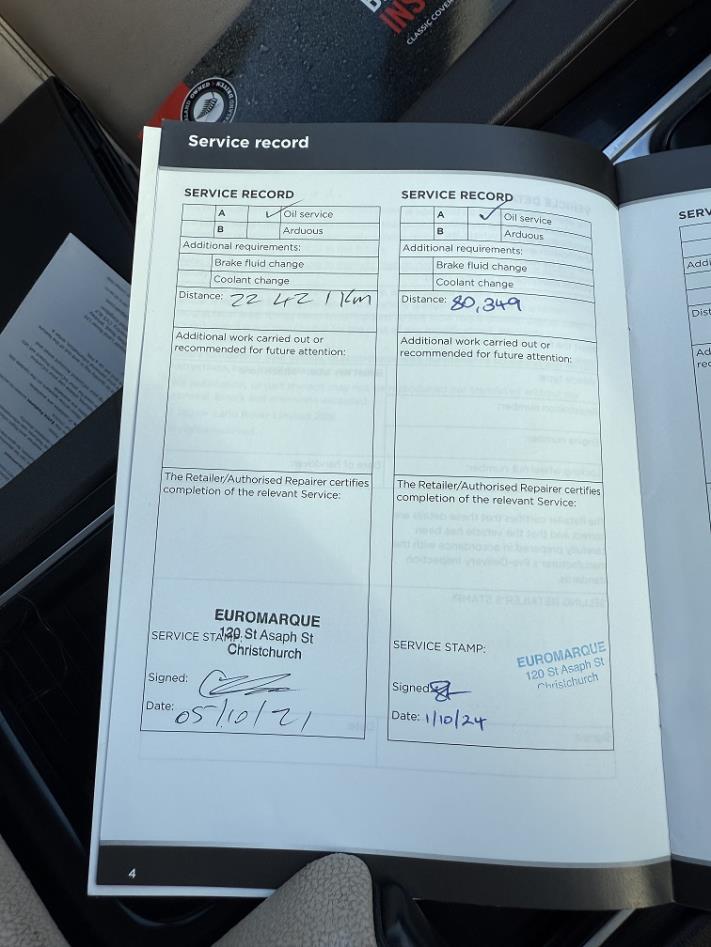 INS
CLASSIC COVER
Service record
SERVICE RECORD
A ✓ Oil service
B Arduous
Additional requirements:
Brake fluid change
Coolant change
Distance: 22 421 Km
Additional work carried out or
recommended for future attention:
The Retailer/Authorised Repairer certifies
completion of the relevant Service:
EUROMARQUE
SERVICE STAMP:
120 St Asaph St
Christchurch
Signed:
Date: 05/10/21
SERVICE RECORD
A ✓ Oil service
B Arduous
Additional requirements:
Brake fluid change
Coolant change
Distance: 80,349
Additional work carried out or
recommended for future attention:
The Retailer/Authorised Repairer certifies
completion of the relevant Service:
SERVICE STAMP:
EUROMARQUE
120 St Asaph St
Christchurch
Signed:
Date: 1/10/24
SERV
Addi
Dist
Ad
rec
4